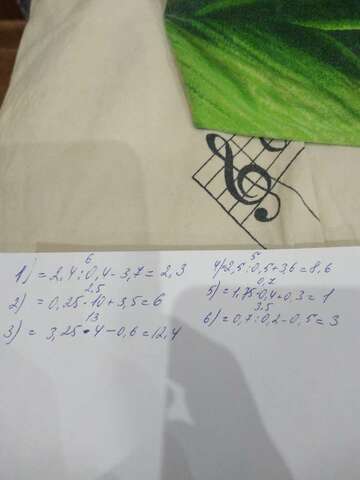 6
1) = 2,4 : 0,4 - 3,7 = 2,3
2,5
2) = 0,25 · 10 + 3,5 = 6
13
3) = 3,25 · 4 - 0,6 = 12,4
5
4) = 2,5 : 0,5 + 3,6 = 8,6
0,7
5) = 1,75 · 0,4 + 0,3 = 1
3,5
6) = 0,7 : 0,2 - 0,5 = 3